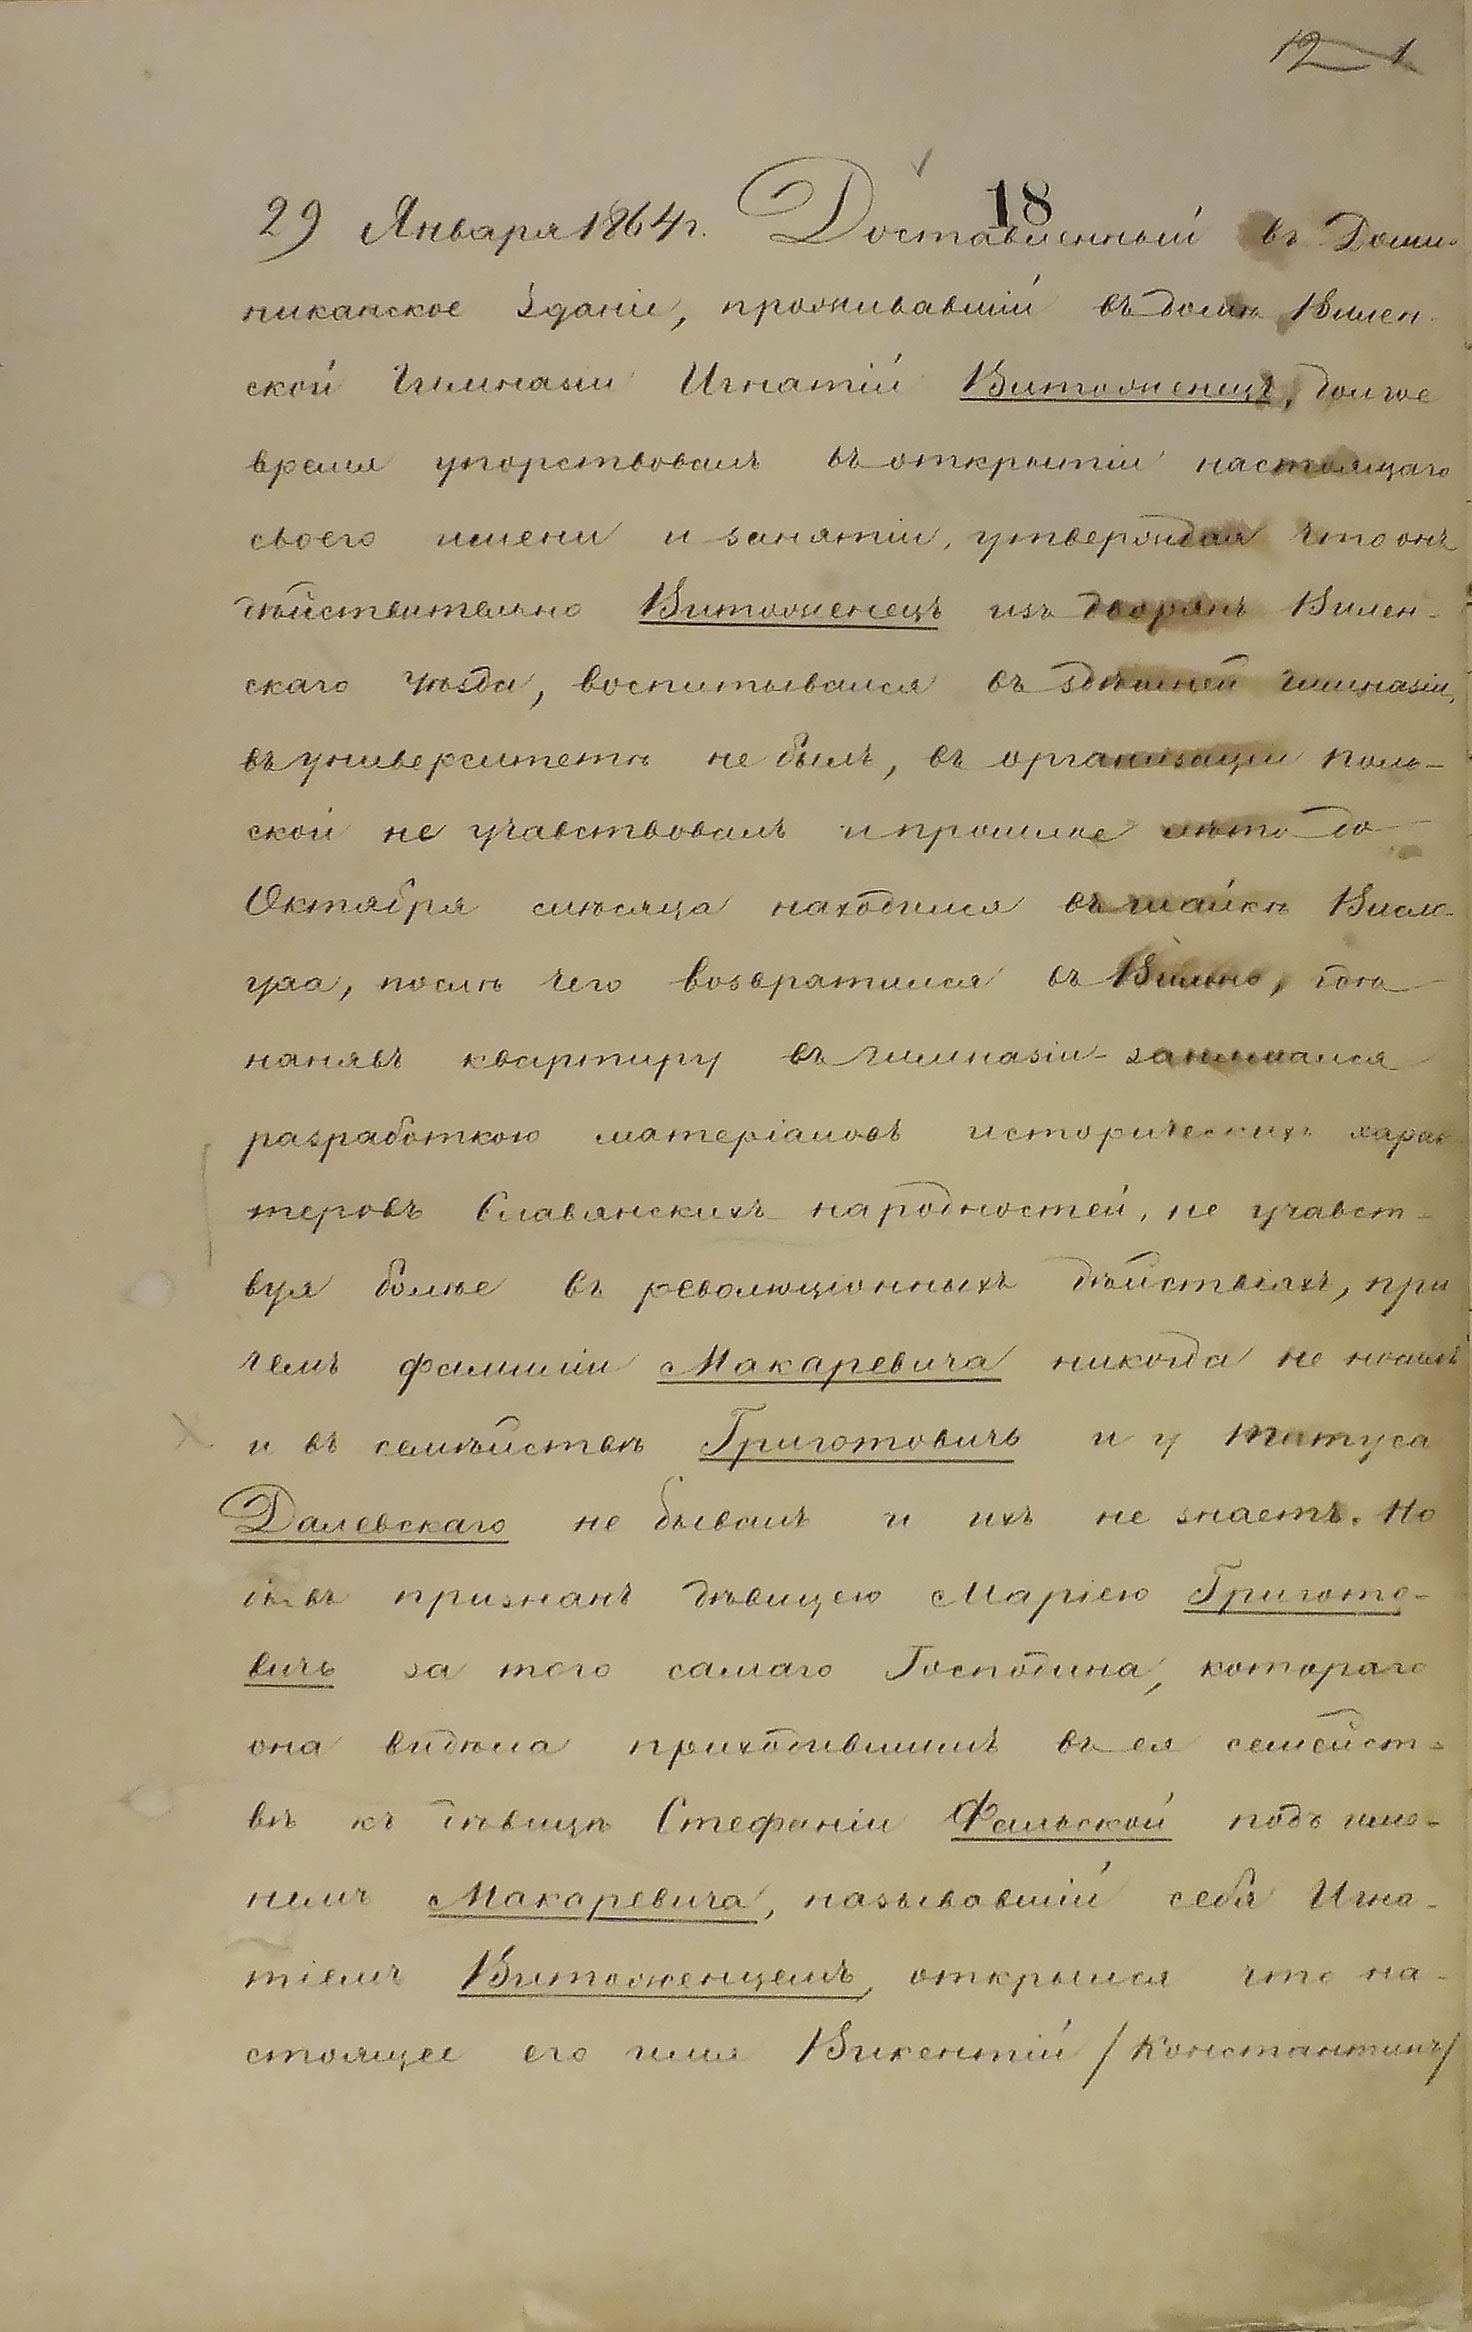 12 1
18
29 Января 1864 г. Доставленный въ Доми-
никанское Зданіе, проживавшій въ домѣ Вилен-
ской Гимназіи Игнатій Витоженецъ, долгое
время упорствовалъ въ открытіи настоящаго
своего имени и занятіи, утверждая что онъ
дѣйствительно Витоженецъ изъ дворянъ Вилен-
скаго уѣзда, воспитывался въ здѣшней гимназіи,
въ университетѣ не былъ, въ организаціи поль-
ской не учавствовалъ и прошлое лѣто до
Октября мѣсяца находился въ шайкѣ Висло-
уха, послѣ чего возвратился въ Вильно, гдѣ
нанявъ квартиру въ гимназіи занимался
разработкою матеріаловъ историческихъ харак-
теровъ Славянскихъ народностей, не учавст-
вуя болѣе въ революціонныхъ дѣйствіяхъ, при
чемъ фамиліи Макаревича никогда не носилъ
и въ семѣйствѣ Григотовичъ и у Титуса
Далевскаго не бывалъ и ихъ не знаетъ. Но
бывъ признанъ дѣвицею Маріею Григото-
вичъ за того самаго Господина, котораго
она видѣла приходившимъ въ ея семейст-
вѣ къ дѣвицѣ Стефаніи Фальской подъ име-
немъ Макаревича, называвшій себя Игна-
тіемъ Витоженцемъ, открылся что на-
стоящее его имя Викентій /Константинъ/